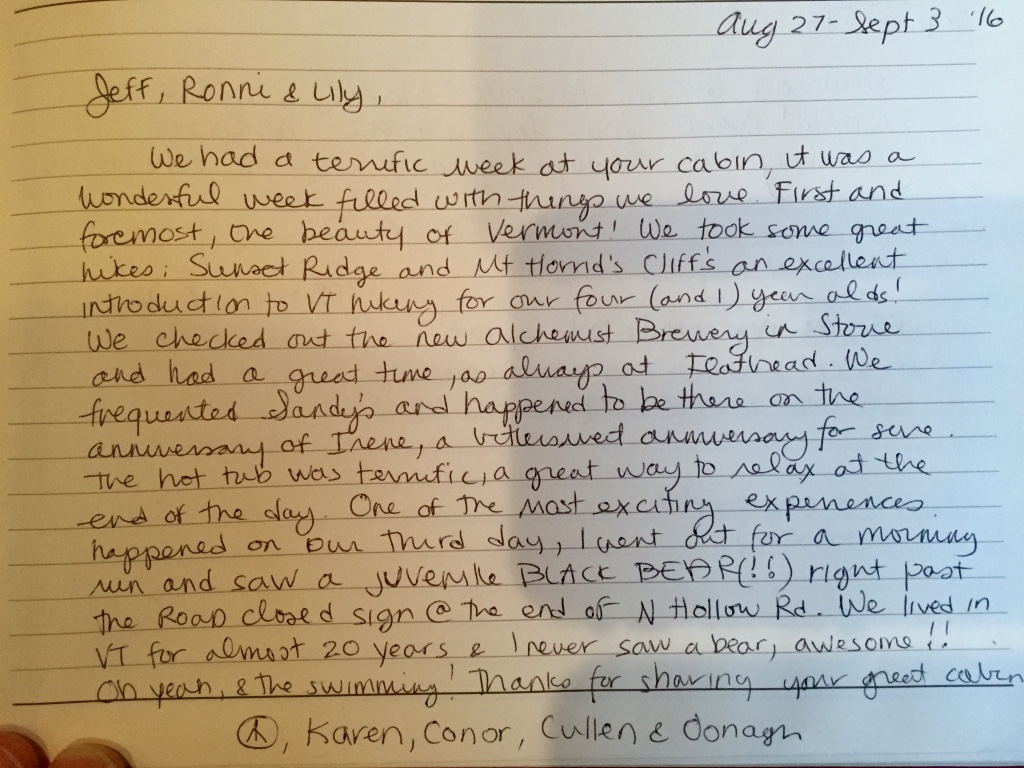 Aug 27-Sept 3 '16
Jeff, Ronni & Lily,
We had a terrific week at your cabin, it was a
wonderful week filled with things we love. First and
foremost, the beauty of Vermont! We took some great
hikes; Sunset Ridge and Mt Horrid's Cliff's an excellent
introduction to VT hiking for our four (and 1) year olds!
We checked out the new Alchemist Brewery in Stowe
and had a great time, as always at Feathead. We
frequented Sandy's and happened to be there on the
anniversary of Irene, a bittersweet anniversary for sure.
The hot tub was terrific, a great way to relax at the
end of the day. One of the most exciting experiences
happened on our third day, I went out for a morning
run and saw a juvenille BLACK BEAR(!!) right past
the Road closed sign @ the end of N Hollow Rd. We lived in
VT for almost 20 years & I never saw a bear, awesome!!
Oh yeah, & the swimming! Thanks for sharing your great cabin
, Karen, Conor, Cullen & Oonagh